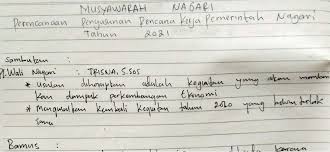 MUSYAWARAH NAGARI
Perencanaan Penyusunan Rencana Kerja Pemerintah Nagari
Tahun 2021
Sambutan :
Wali Nagari : TRISNA, S.SOS
* Usulan diharapkan adalah kegiatan yang akan memban
kan dampak perkembangan Ekonomi
* Mengusulkan kembali kegiatan tahun 2020 yang belum
Bamus :